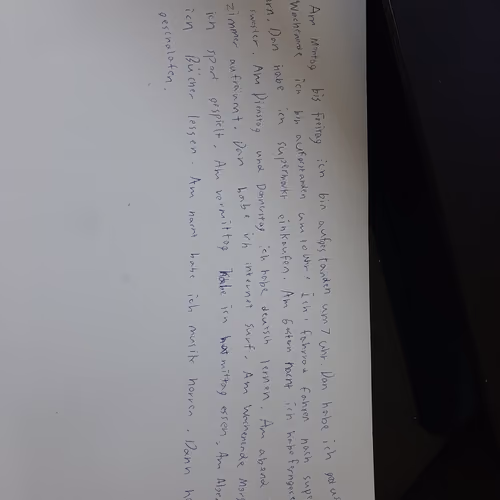 Am Montag bis freitag ich bin aufgestanden um 7 uhr. Dan habe ich
Wochenende ich bin aufgestanden um 10 uhr. Ich fahrrad fahren nach
Dan habe ich supermarkt einkaufen. Am guten nacht ich habe
Am Dienstag und Donnerstag ich habe deutsch lernen. Am abend
zimmer aufräumt. Dan habe ich internet surf. Am Wochenende
ich sport gespielt. Am vormittag habe ich mittag essen. Am
ich Bücher lessen. Am nacht habe ich musik horren. Dann
geschalofen.